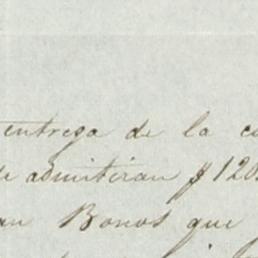 entrega de la
admitiran $ 120
Bonos que